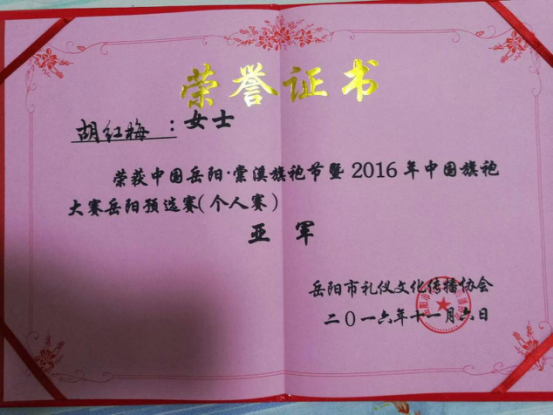 荣誉证书
胡红梅：女士
荣获中国岳阳·棠溪旗袍节暨2016年中国旗袍
大赛岳阳预选赛(个人赛)
亚军
岳阳市礼仪文化传播协会
二〇一六年十一月六日